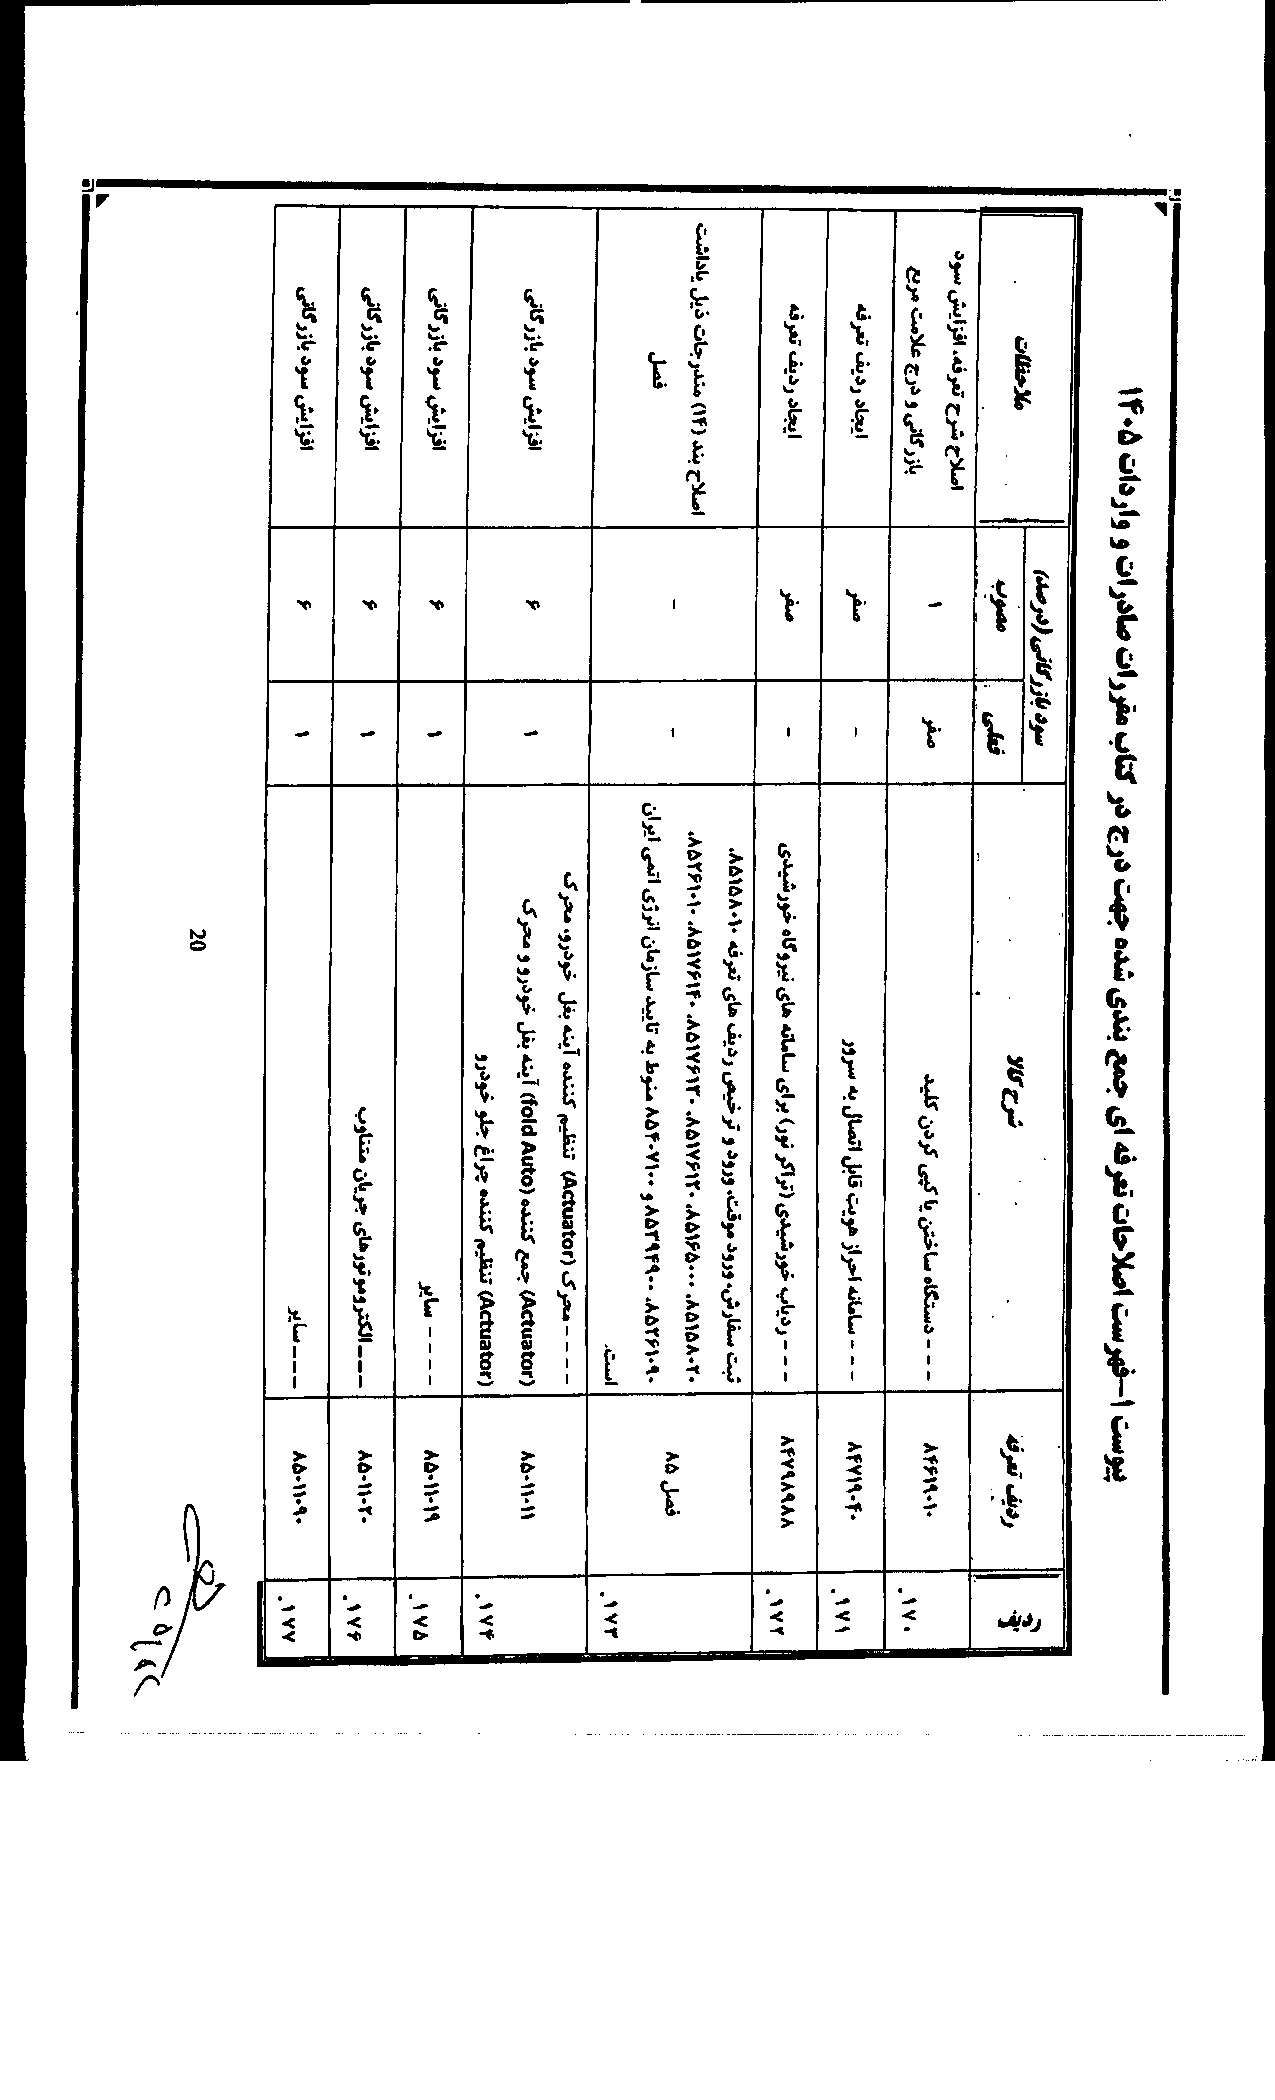 پیوست ۱-فهرست اصلاحات تعرفه ای جمع بندی شده جهت درج در کتاب مقررات صادرات و واردات ۱۴۰۵
ردیف
ردیف تعرفه
شرح کالا
سود بازرگانی (درصد)
فعلی
مصوب
ملاحظات
۱۷۰.
۸۴۶۱۹۰۱۰
- - - دستگاه ساختن یا کپی کردن کلید
صفر
۱
اصلاح شرح تعرفه، افزایش سود
بازرگانی و درج علامت مربع
۱۷۱.
۸۴۷۱۹۰۴۰
- - - سامانه احراز هویت قابل اتصال به سرور
-
صفر
ایجاد ردیف تعرفه
۱۷۲.
۸۴۷۹۸۹۸۸
- - - ردیاب خورشیدی (تراکر نور) برای سامانه های نیروگاه خورشیدی
-
صفر
ایجاد ردیف تعرفه
۱۷۳.
فصل ۸۵
ثبت سفارش، ورود موقت، ورود و ترخیص ردیف های تعرفه ۸۵۱۵۸۰۱۰،
۸۵۱۵۸۰۲۰، ۸۵۱۶۵۰۰۰، ۸۵۱۷۶۱۲۰، ۸۵۱۷۶۱۳۰، ۸۵۱۷۶۱۴۰، ۸۵۲۶۱۰۱۰،
۸۵۲۶۱۰۹۰، ۸۵۳۹۴۹۰۰ و ۸۵۴۰۷۱۰۰ منوط به تایید سازمان انرژی اتمی ایران
است.
-
-
اصلاح بند (۱۴) مندرجات ذیل یاداشت
فصل
۱۷۴.
۸۵۰۱۱۰۱۱
- - - - محرک (Actuator) تنظیم کننده آینه بغل خودرو، محرک
(Actuator) جمع کننده (fold Auto) آینه بغل خودرو و محرک
(Actuator) تنظیم کننده چراغ جلو خودرو
۱
۶
افزایش سود بازرگانی
۱۷۵.
۸۵۰۱۱۰۱۹
- - - - سایر
۱
۶
افزایش سود بازرگانی
۱۷۶.
۸۵۰۱۱۰۲۰
---الکتروموتورهای جریان متناوب
۱
۶
افزایش سود بازرگانی
۱۷۷.
۸۵۰۱۱۰۹۰
---سایر
۱
۶
افزایش سود بازرگانی
20